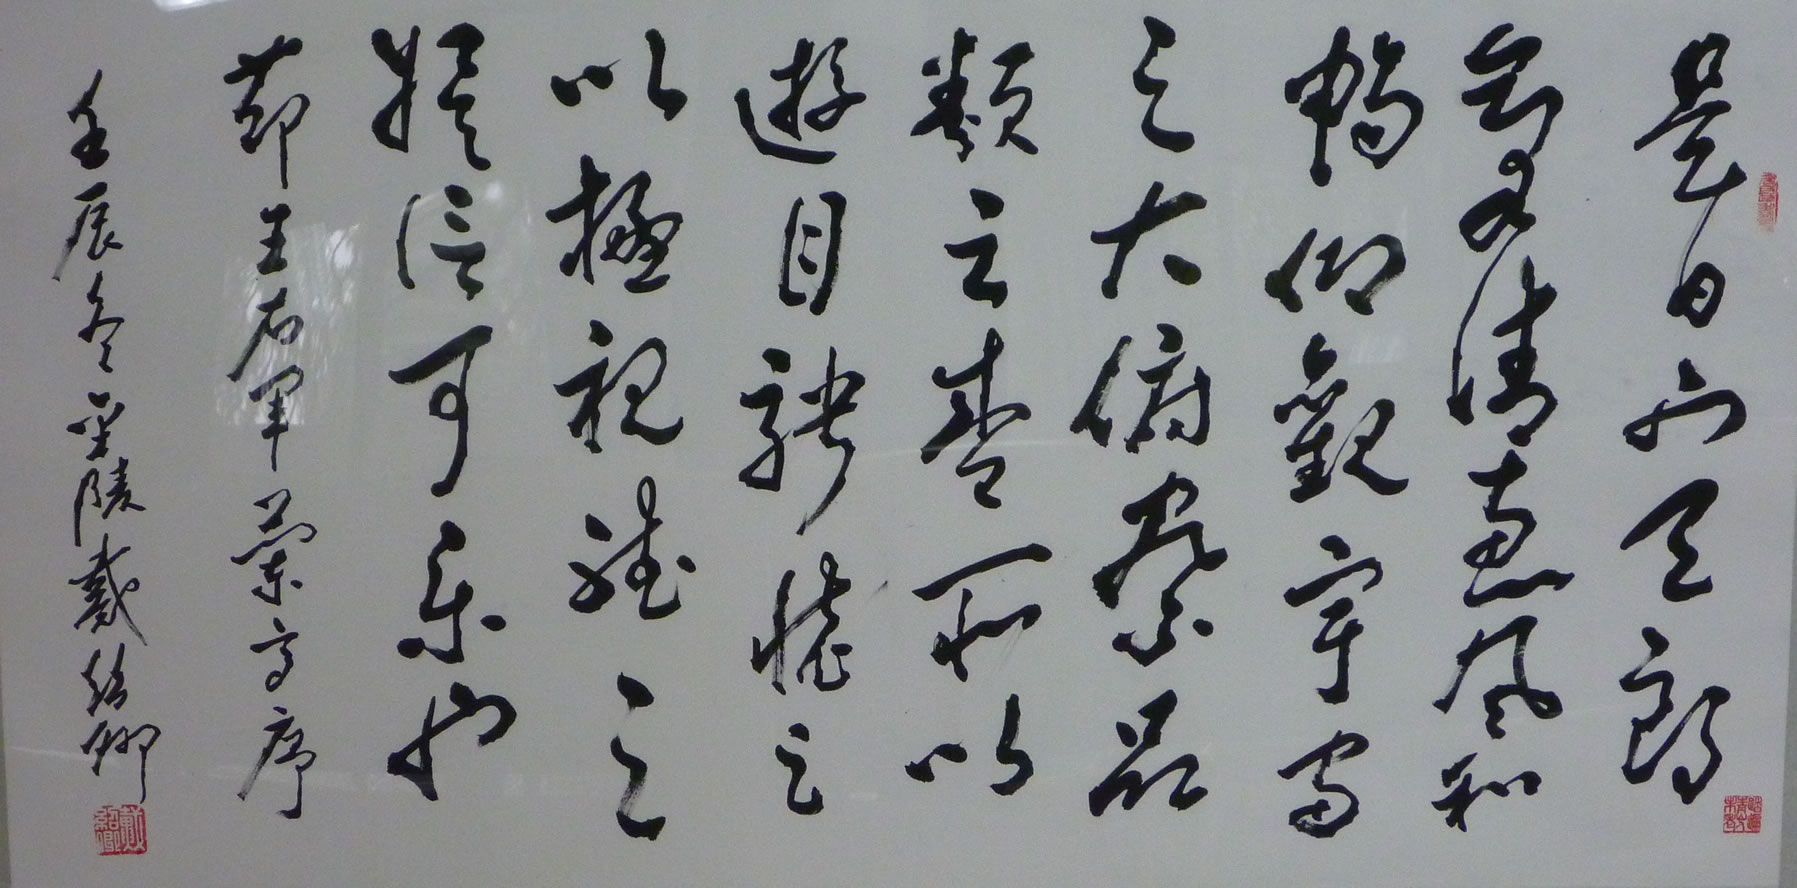 是日也天朗
氣清惠風和
暢仰觀宇宙
之大俯察品
類之盛所以
遊目騁懷足
以極視聽之
娛信可樂也
節王右軍蘭亭序
壬辰冬金陵戴紹卿